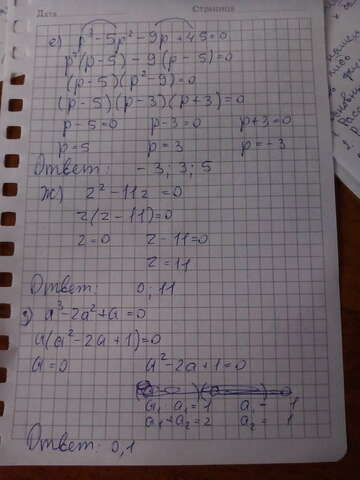 Дата Страница
е) p³-5p²-9p+45=0
p²(p-5)-9(p-5)=0
(p-5)(p²-9)=0
(p-5)(p-3)(p+3)=0
p-5=0 p-3=0 p+3=0
p=5 p=3 p=-3
Ответ: -3; 3; 5
ж) z²-11z=0
z(z-11)=0
z=0 z-11=0
z=11
Ответ: 0; 11
з) a³-2a²+a=0
a(a²-2a+1)=0
a=0 a²-2a+1=0
a₁ a₂=1 a₁=1
a₁+a₂=2 a₂=1
Ответ: 0,1